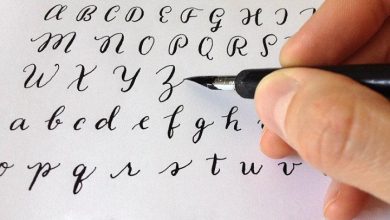 A B C D E F G H I J
M N O P Q R S
W X Y Z
a b c d e f g h
o p q r s t u v